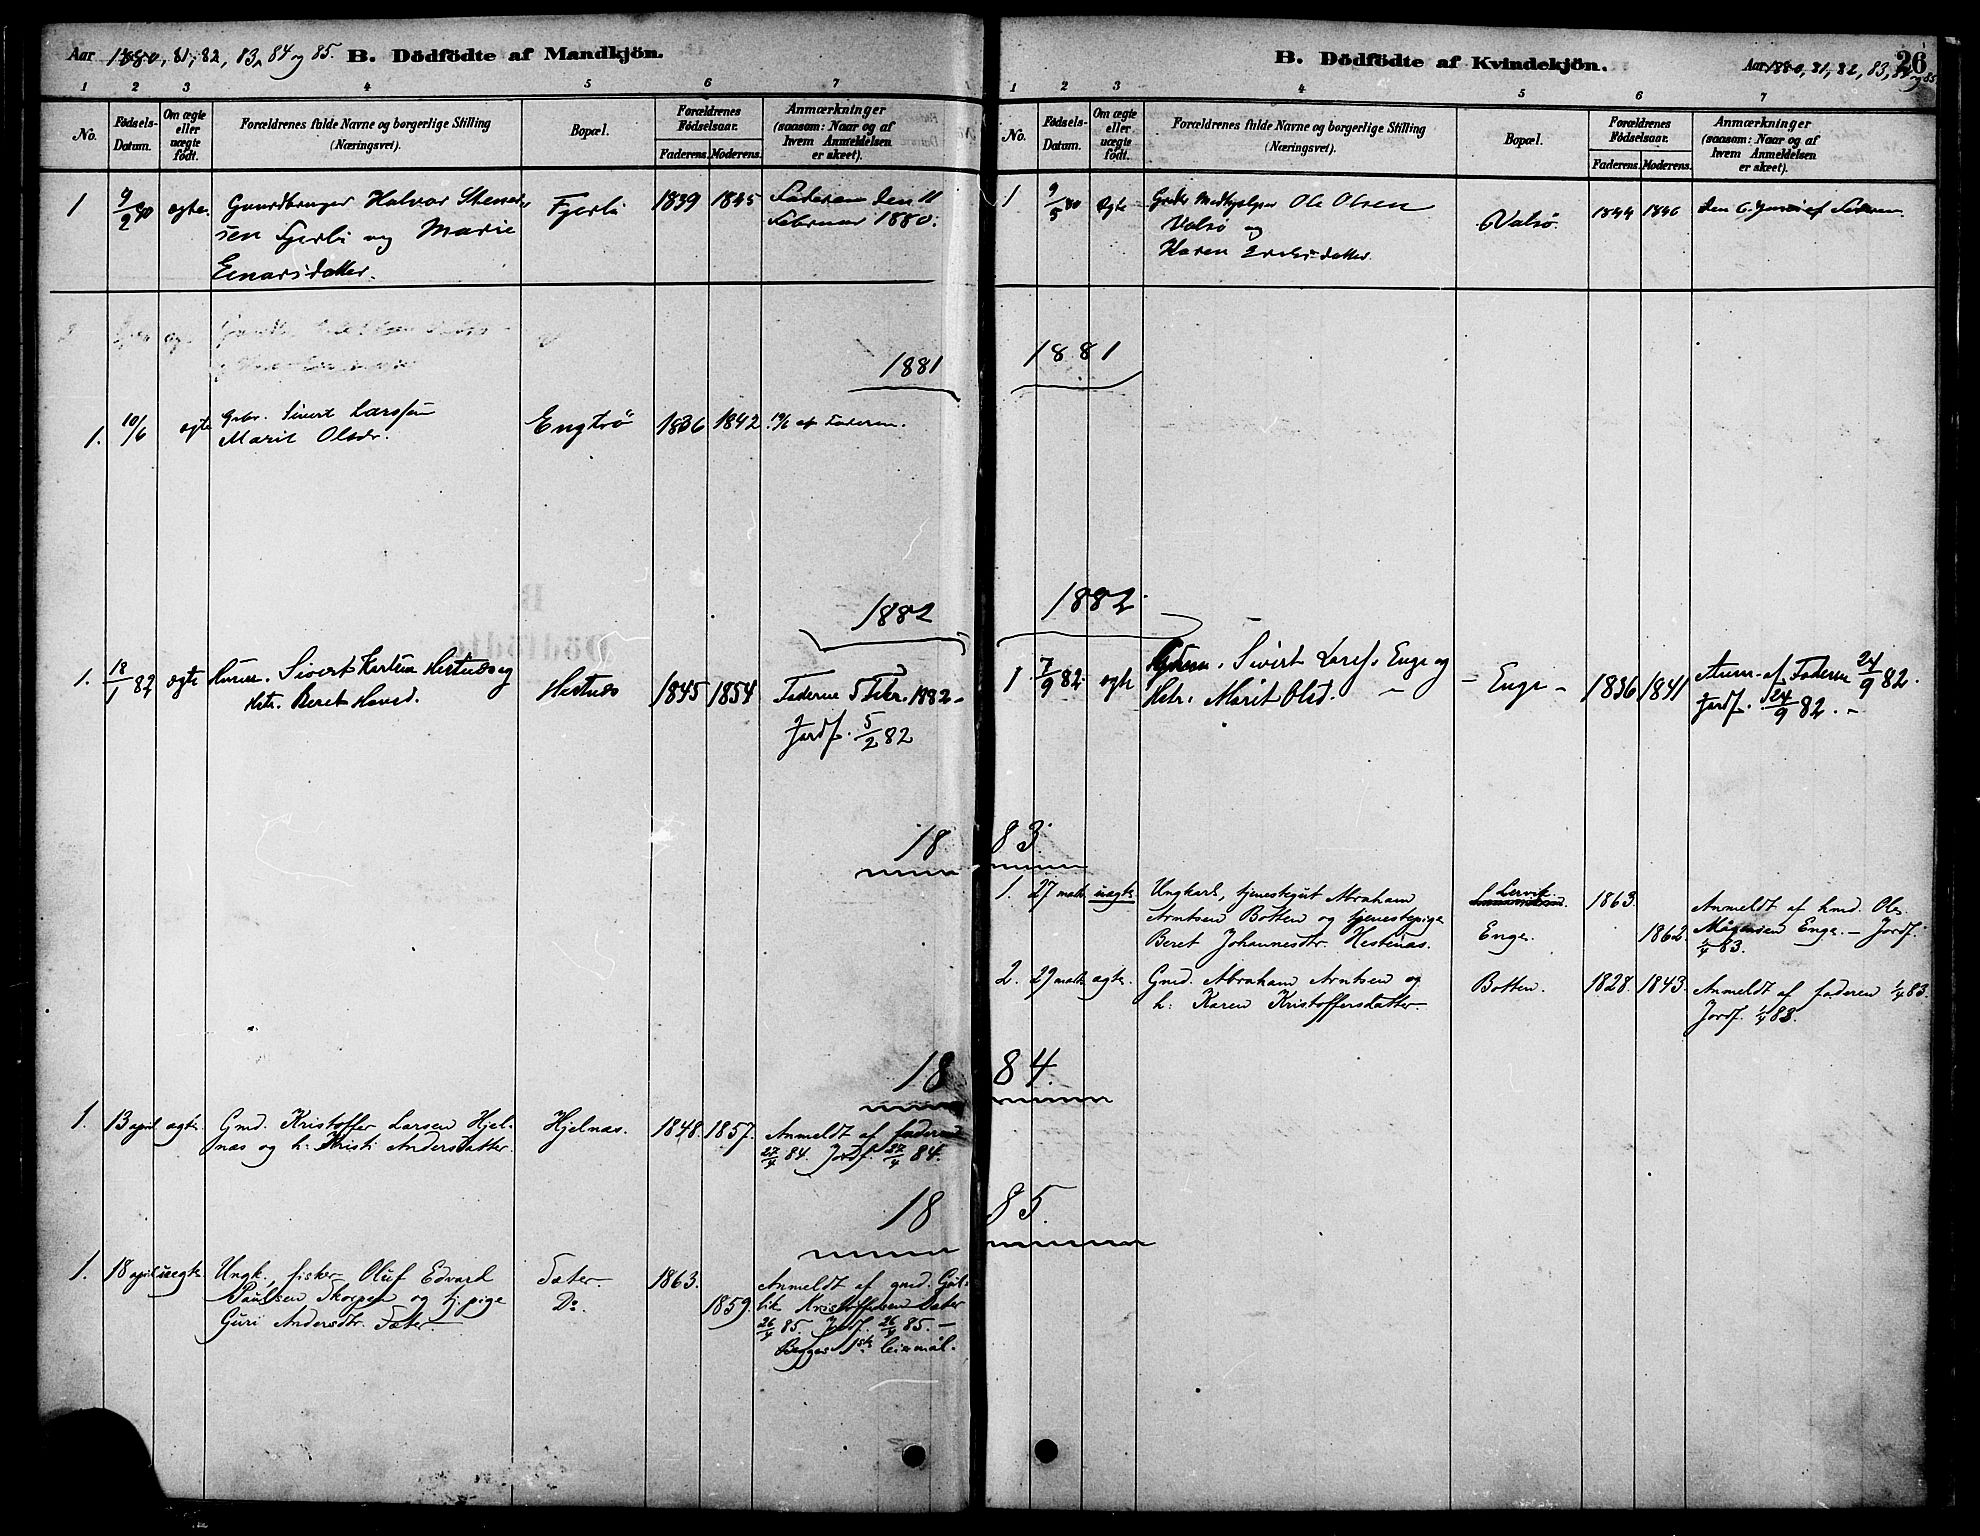 Aar 1880, 81, 82, 83, 84 og 85. B. Dödfödte af Mandkjön.
1 2 3 4 5 6 7
No. Födsels-Datum. Om ægte eller uægte födt. Forældrenes fulde Navne og borgerlige Stilling (Næringsvei). Bopæl. Forældrenes Födselsaar. Faderens. Moderens. Anmærkninger (saasom: Naar og af hvem Anmeldelsen er skeet).
1 9/2 80 ægte. Gaardbruger Halvor Stener- Fjerli 1839 1845 Faderen den 11
sen Fjerli og Marie Februar 1880.
Einarsdatter.
1881
1. 10/6 ægte Gbr. Sivert Larssen Engtrö 1836 1842 19/6 af Faderen.
Marit Olsdr.
1882
1. 18/1 82 ægte Husm. Sivert Karlsen Hestnes og Hestnes 1845 1854 Faderen 5 Febr. 1882
Hstr. Beret Hansd. Jordf. 5/2 82
18
18
1. 13 april ægte Gmd. Kristoffer Larsen Hjel- Hjelnas. 1848. 1857. Anmeldt af faderen
nas og h. Kristi Andersdatter. 27/4 84. Jordf. 27/4 84.
18
1. 18 april uægte Ungk., fisker Oluf Edvard Sæter 1863. Anmeldt af gmd. Gul-
Paulsen Skorpen og tj. pige Do. 1859. lik Kristoffersen Sæter
Guri Andersdtr. Sæter. 26/4 85. Jordf. 26/4 85.
Begges 1ste leiermål.
B. Dödfödte af Kvindekjön. Aar 1880, 81, 82, 83, 84 og 85 26
1 2 3 4 5 6 7
No. Födsels-Datum. Om ægte eller uægte födt. Forældrenes fulde Navne og borgerlige Stilling (Næringsvei). Bopæl. Forældrenes Födselsaar. Faderens. Moderens. Anmærkninger (saasom: Naar og af hvem Anmeldelsen er skeet).
1 9/5 80 Ægte Ole Olsen Valsö. 1844 1846 Den 6 Juni af Faderen
Valsö og
Karen Eriksdatter.
1881
1882
1 7/9 82. ægte Sivert Larss. Enge og - Enge - 1836 1841 Anm. af Faderen 24/9 82.
Hstr. Marit Olsd. - Jordf. 24/9 82. -
83.
1. 27 marts uægte Ungkarl, tjenestegut Abraham Lervik. 1863. Anmeldt af hmd. Ole
Arntsen Botten og tjenestepige Enge. 1862. Mågensen Enge. - Jordf.
Beret Johannesdtr. Hestenas. 1/4 83.
2. 29 marts ægte. Gmd. Abraham Arntsen og Botten. 1828. 1843. Anmeldt af faderen 1/4 83.
h. Karen Kristoffersdatter. Jordf. 1/4 83.
84.
85.